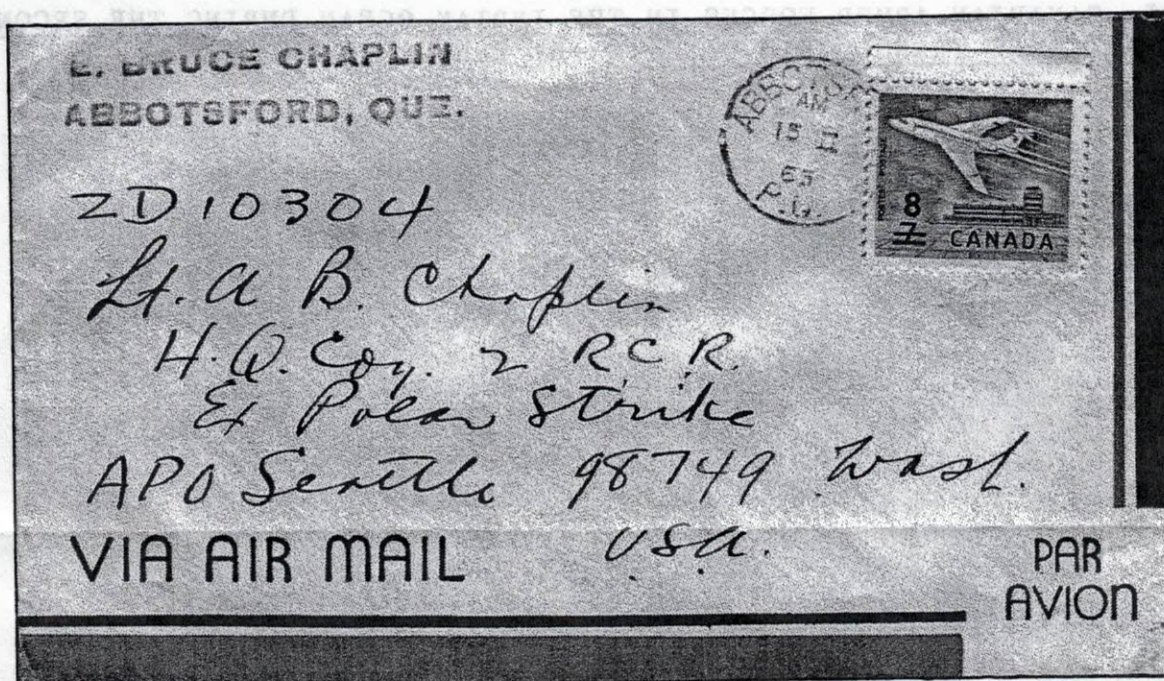 E. BRUCE CHAPLIN
ABBOTSFORD, QUE.
ABBOTSF
AM
15 II
65
P.Q.
8
7 CANADA
ZD 10304
Lt. A B. Chaplin
H.Q. Coy. 2 R.C.R.
Ex Polar Strike
APO Seattle 98749 Wash.
U.S.A.
VIA AIR MAIL
PAR
AVION